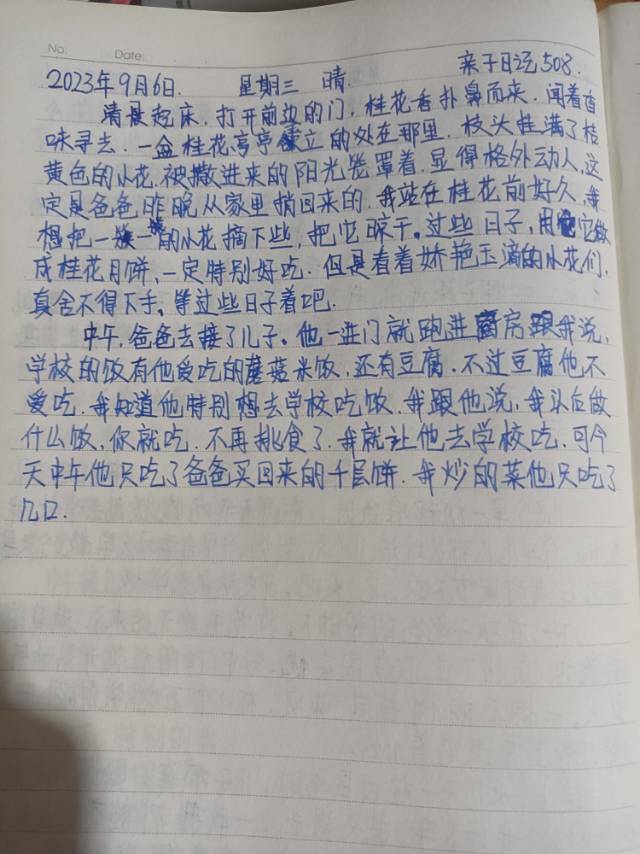 No:
Date:
亲子日记508.
2023年9月6日. 星期三 晴
清晨起床,打开前边的门,桂花香扑鼻而来.闻着香
味寻去.一盆桂花亭亭立的处在那里.枝头挂满了桔
黄色的小花.被撒进来的阳光笼罩着.显得格外动人.这
定是爸爸昨晚从家里捎回来的.我站在桂花前好久,我
想把一些的小花摘下些,把它晾干。过些日子,用它做
成桂花月饼,一定特别好吃.但是看着娇艳玉滴的小花们,
真舍不得下手。等过些日子着吧.
中午,爸爸去接了儿子。他一进门就跑进厨房跟我说,
学校的饭有他爱吃的蘑菇米饭,还有豆腐.不过豆腐他不
爱吃.我知道他特别想去学校吃饭.我跟他说,我以后做
什么饭,你就吃.不再挑食了.我就让他去学校吃.可今
天中午他只吃了爸爸买回来的千层饼.我炒的菜他只吃了
几口.